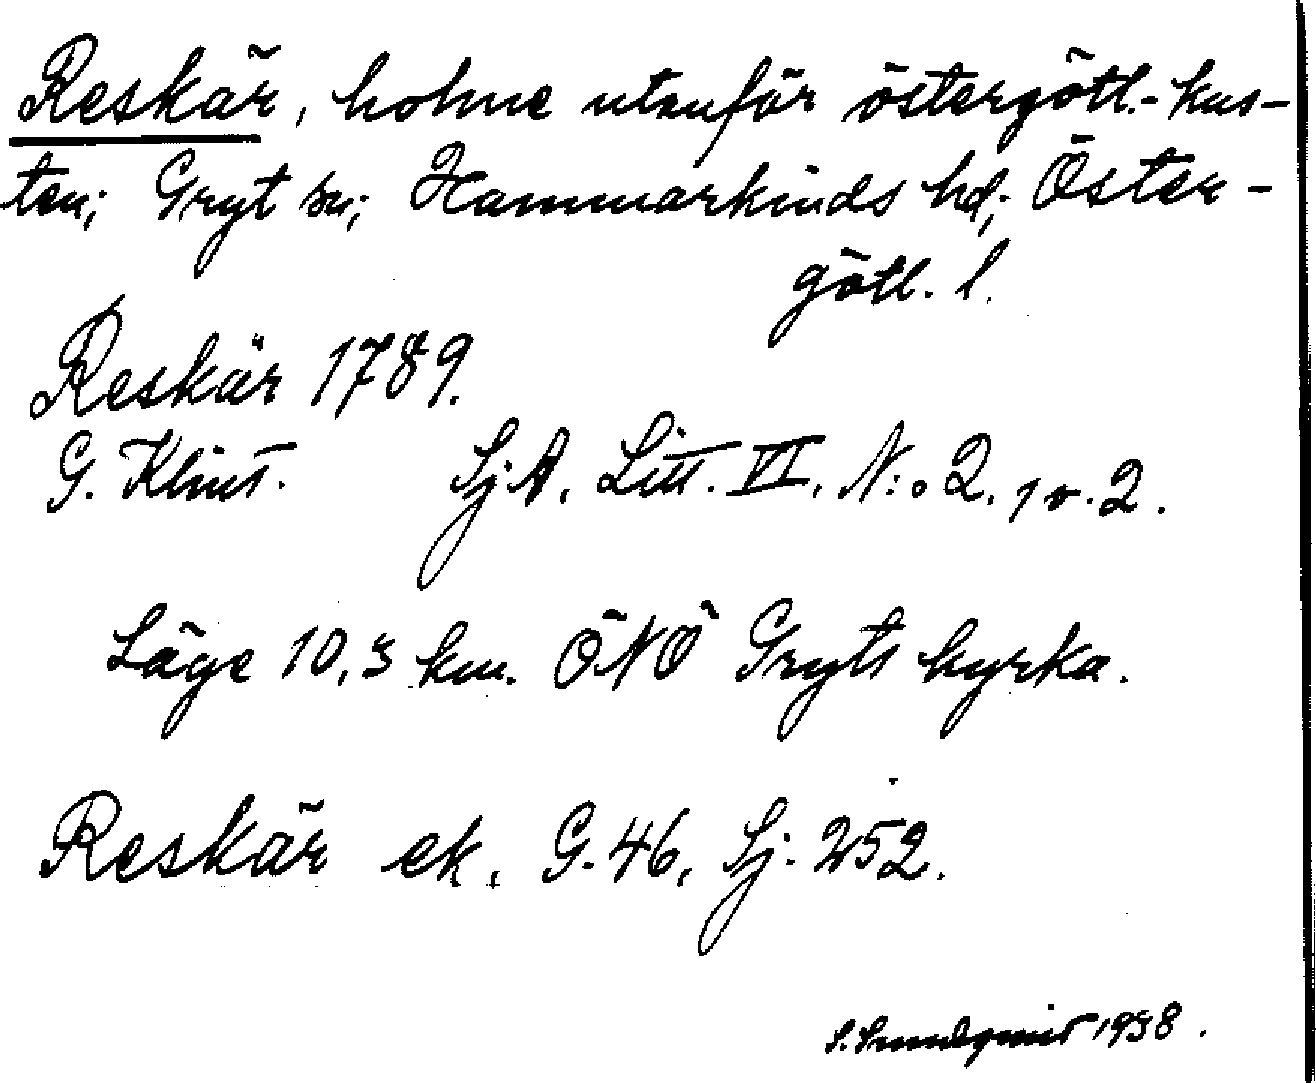 Reskär, holme utanför östergötl.-kus-
ten; Gryt sn; Hammarkinds hd; Öster-
götl. l.
Reskär 1789.
G. Klint. SjA. Litt. VI. N:o 2. 1 o. 2.
Läge 10,3 km. ÖNÖ Gryts kyrka.
Reskär ek. G. 46, Sj. 252.
S. Sundqvist 1938.